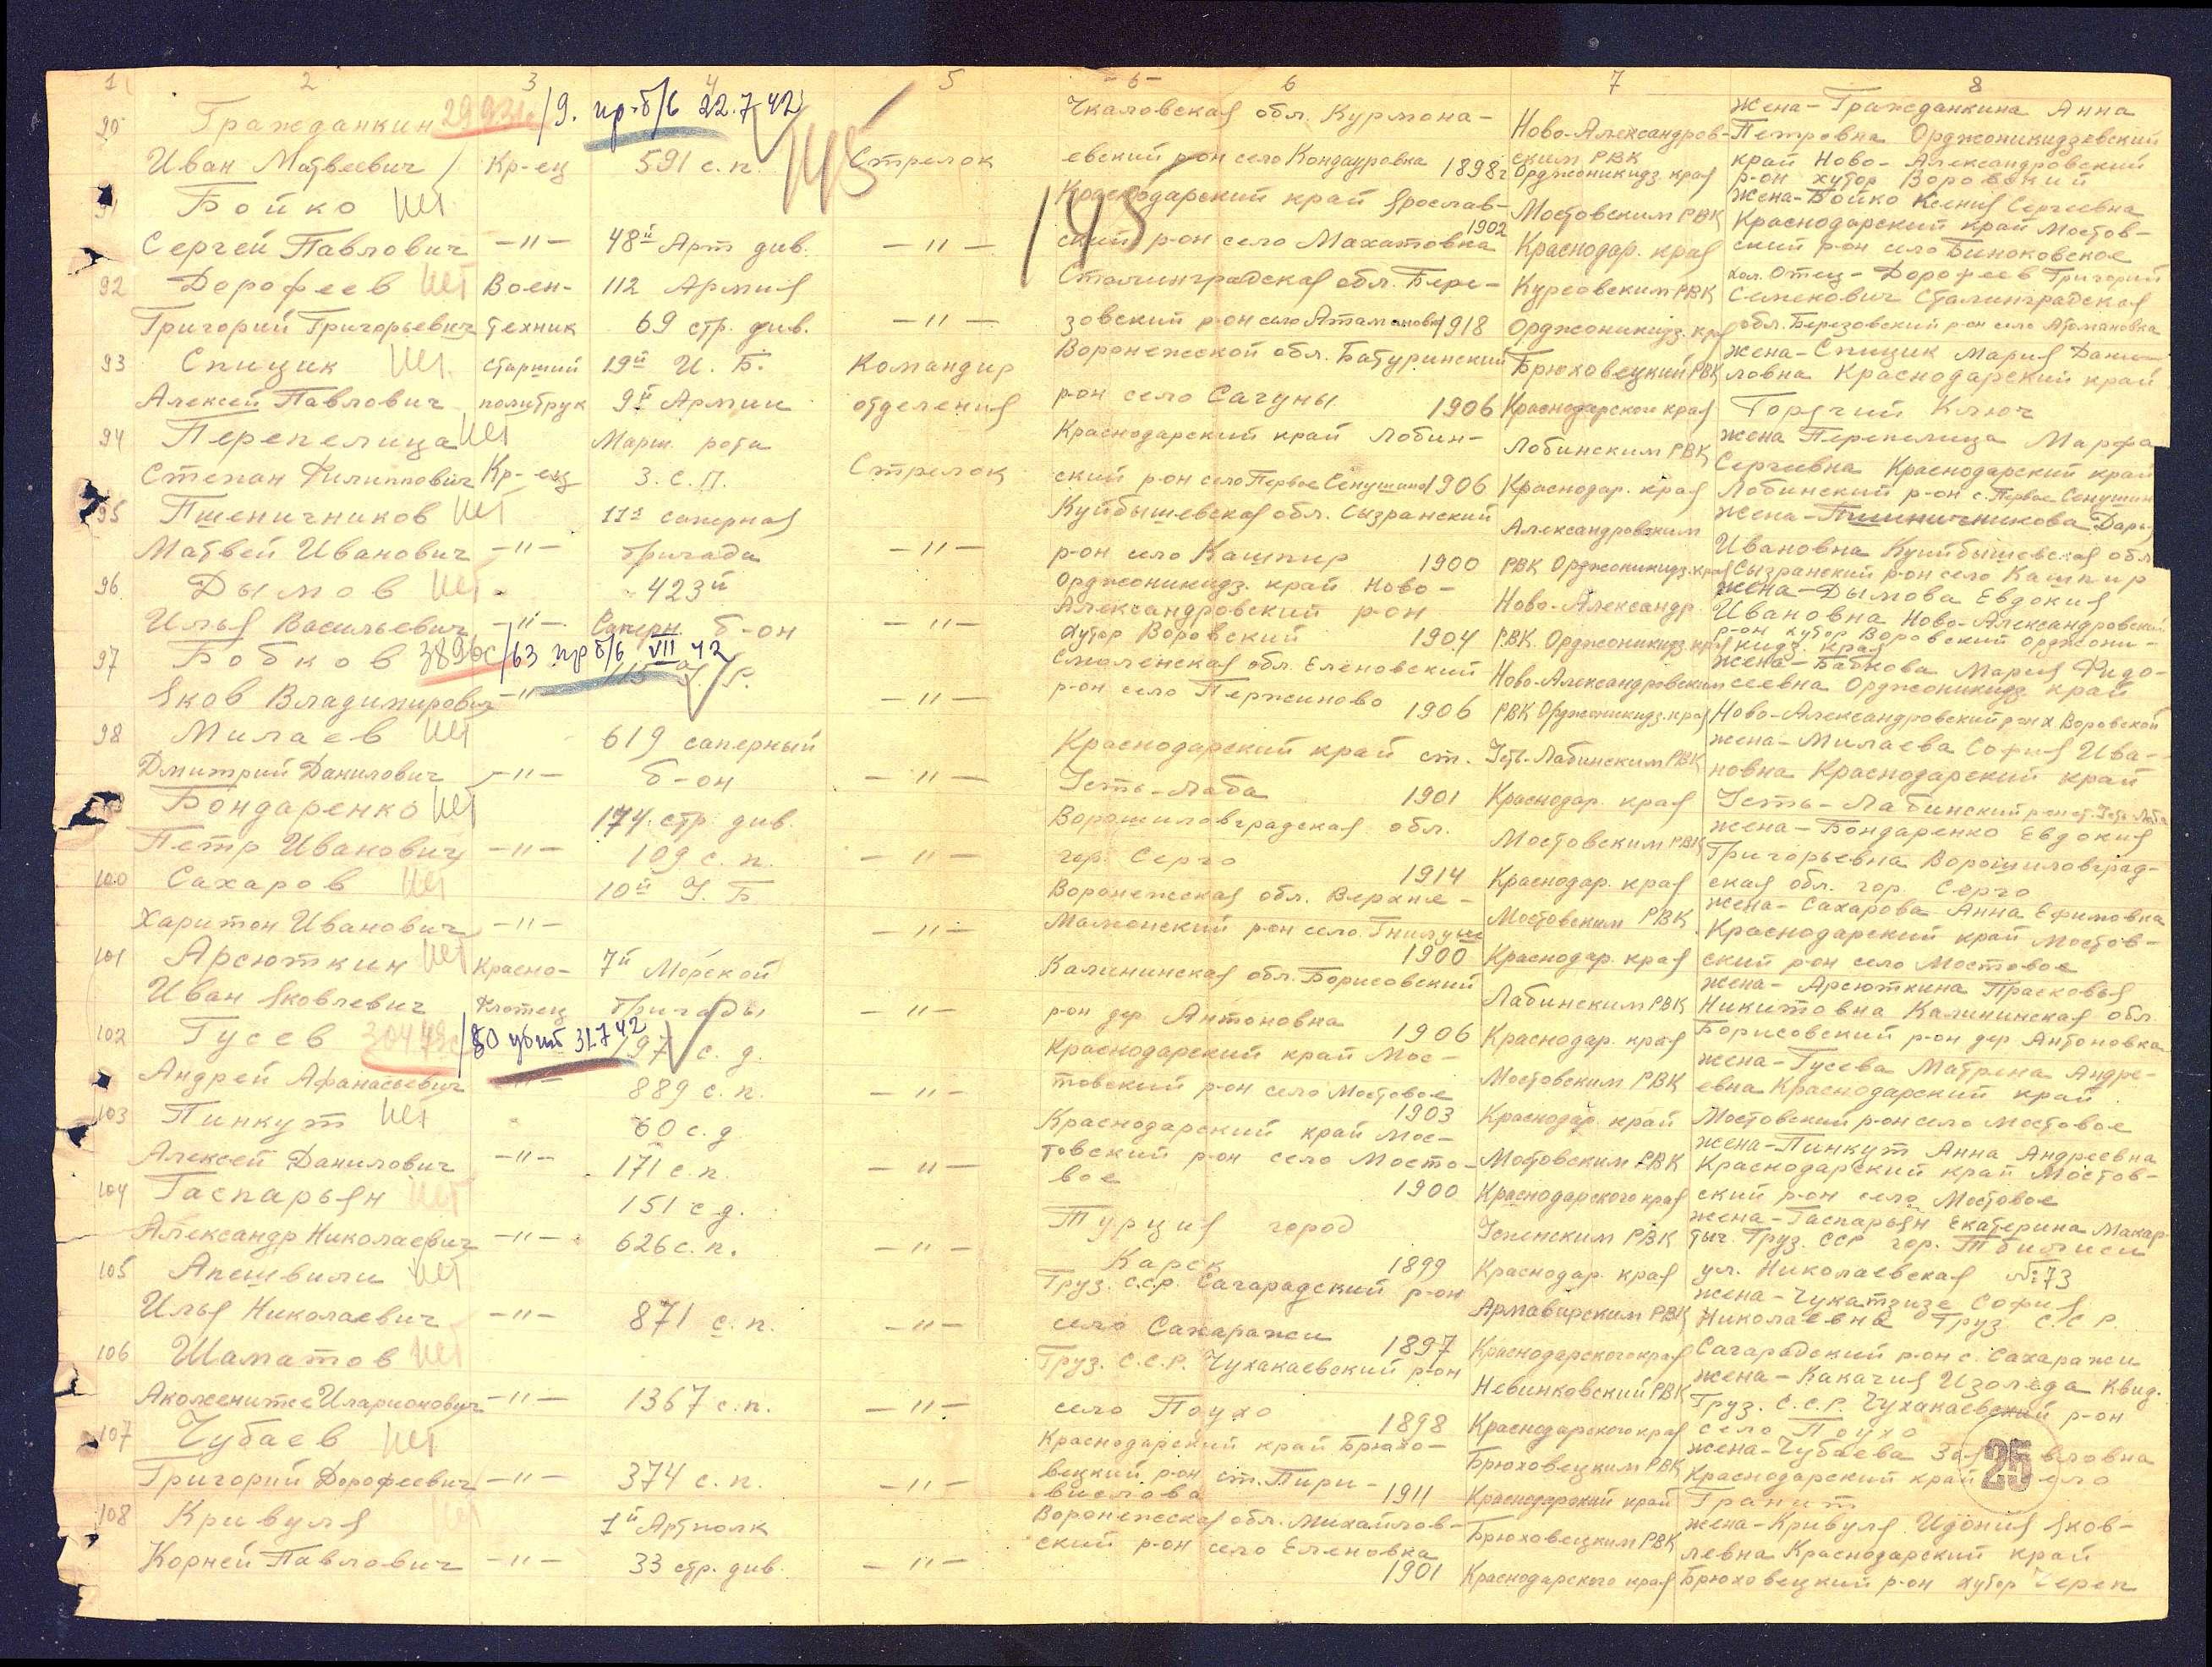 1 2 3 4 5 - 6 - 6 7 8
90 Гражданкин 29931с/9. пр-б/б 22.7.42
Иван Матвеевич Кр-ец 591 с.п. Стрелок
Чкаловская обл. Курмона-
евский р-он село Кондауровка 1898г
Ново-Александров-
ским РВК
Орджоникидз. края
жена - Гражданкина Анна
Петровна Орджоникидзевский
край Ново-Александровский
р-он хутор Воровский
145
145
91 Бойко нет
Сергей Павлович -"- 48й Арт див. -"-
Краснодарский край Ярослав-
ский р-он село Махатовка 1902
Мостовским РВК
Краснодар. края
жена - Бойко Ксения Сергеевна
Краснодарский край Мостов-
ский р-он село Биноковское
92 Дорофеев нет Воен- 112 Армия
Григорий Григорьевич техник 69 стр. див. -"-
Сталинградская обл. Бере-
зовский р-он село Атамановка 1918
Курсовским РВК
Орджоникидз. края
хол. Отец - Дорофеев Григорий
Семенович Сталинградская
обл. Березовский р-он село Атамановка
93 Спицик нет. старший 19й И. Б. Командир
Алексей Павлович политрук 9й Армии отделения
Воронежской обл. Батуринский
р-он село Сагуны 1906
Брюховецкий РВК
Краснодарской края
жена - Спицик Мария Дани-
ловна Краснодарский край
Горячий Ключ
94 Перепелица нет Марш. рота
Степан Филиппович Кр-ец З.С.П. Стрелок
Краснодарский край Лобин-
ский р-он село Первое Сенушино 1906
Лобинским РВК
Краснодар. края
жена Перепелица Марфа
Сергеевна Краснодарский край
Лобинский р-он с. Первое Сенушин
95 Пшеничников нет 11я саперная
Матвей Иванович -"- бригада -"-
Куйбышевская обл. Сызранский
р-он село Кашпир 1900
Александровским
РВК Орджоникидз. края
жена - Пшеничникова Дарья
Ивановна Куйбышевская обл
Сызранский р-он село Кашпир
96 Дымов нет 423й
Илья Васильевич -"- Саперн. б-он -"-
Орджоникидз. край Ново-
Александровский р-он
хутор Воровский 1904
Ново-Александр.
РВК Орджоникидз. края
жена - Дымова Евдокия
Ивановна Ново-Александровский
р-он хутор Воровский Орджони-
кидз. края
97 Бобков 3896с/63 пр б/б VII 42
Яков Владимирович -"- -"-
Смоленская обл. Еленовский
р-он село Пержиново 1906
Ново-Александровским
РВК Орджоникидз. края
жена - Бабкова Мария Фидо-
сеевна Орджоникидз край
Ново-Александровский р-он х Воровской
98 Милаев нет 619 саперный
Дмитрий Данилович -"- б-он -"-
Краснодарский край ст.
Усть-Лаба 1901
Усть-Лабинским РВК
Краснодар. края
жена - Милаева София Ива-
новна Краснодарский край
Усть-Лабинский р-он ст. Усть Лаба
Бондаренко нет 174 стр. див.
Петр Иванович -"- 109 с.п. -"-
Ворошиловградская обл.
гор. Серго 1914
Мостовским РВК
Краснодар. края
жена - Бондаренко Евдокия
Григорьевна Ворошиловград-
ская обл. гор. Серго
100 Сахаров нет 10й У. Б
Харитон Иванович -"- -"-
Воронежская обл. Верхне-
Мамонский р-он село Гнилуше 1900
Мостовским РВК
Краснодар. края
жена - Сахарова Анна Ефимовна
Краснодарский край Мостов-
ский р-он село Мостовое
101 Арсюткин нет Красно- 7й Морской
Иван Яковлевич Флотец бригады -"-
Калининская обл. Борисовский
р-он дер. Антоновна 1906
Лабинским РВК
Краснодар. края
жена - Арсюткина Прасковья
Никитовна Калининская обл.
Борисовский р-он дер Антоновка
102 Гусев 30449с/80 убит 31.7.42 197 с.д.
Андрей Афанасьевич -"- 889 с.п. -"-
Краснодарский край Мос-
товский р-он село Мостовое 1903
Мостовским РВК
Краснодар. край
жена - Гусева Матрена Андре-
евна Краснодарский край
Мостовский р-он село Мостовое
103 Пинкут нет 60 с.д
Алексей Данилович -"- 171 с.п. -"-
Краснодарский край Мос-
товский р-он село Мосто-
вое 1900
Мостовским РВК
Краснодарского края
жена - Пинкут Анна Андреевна
Краснодарский край Мостов-
ский р-он село Мостовое
104 Гаспарьян нет 151 с.д.
Александр Николаевич -"- 626 с.п. -"-
Турция город
Карск 1899
Успенским РВК
Краснодар. края
жена - Гаспарьян Екатерина Макар-
тыч. Груз. ССР гор. Тбилиси
ул. Николаевская №73
105 Апешвили нет
Илья Николаевич -"- 871 с.п. -"-
Груз. ССР. Сагарадский р-он
село Сахаражи 1897
Армавирским РВК
Краснодарского края
жена - Чукатзизе София
Николаевна Груз. С.С.Р.
Сагарадский р-он с. Сахаражи
106 Шаматов нет
Акоженитсе Иларионович -"- 1367 с.п. -"-
Груз. С.С.Р. Чухакаевский р-он
село Поухо 1898
Невинковский РВК
Краснодарского края
жена - Какачия Изоледа Квид.
Груз. С.С.Р. Чухакаевский р-он
село Поухо
107 Чубаев нет
Григорий Дорофеевич -"- 374 с.п. -"-
Краснодарский край Брюхо-
вецкий р-он ст. Пири-
вислова 1911
Брюховецким РВК
Краснодарский край
жена - Чубаева вловна
Краснодарский край ело
Гранит
25
108 Кривуля нет 1й Артполк
Корней Павлович -"- 33 стр. див. -"-
Воронежская обл. Михайлов-
ский р-он село Еленовка 1901
Брюховецким РВК
Краснодарского края
жена - Кривуля Идония Яков-
левна Краснодарский край
Брюховецкий р-он хутор Череп